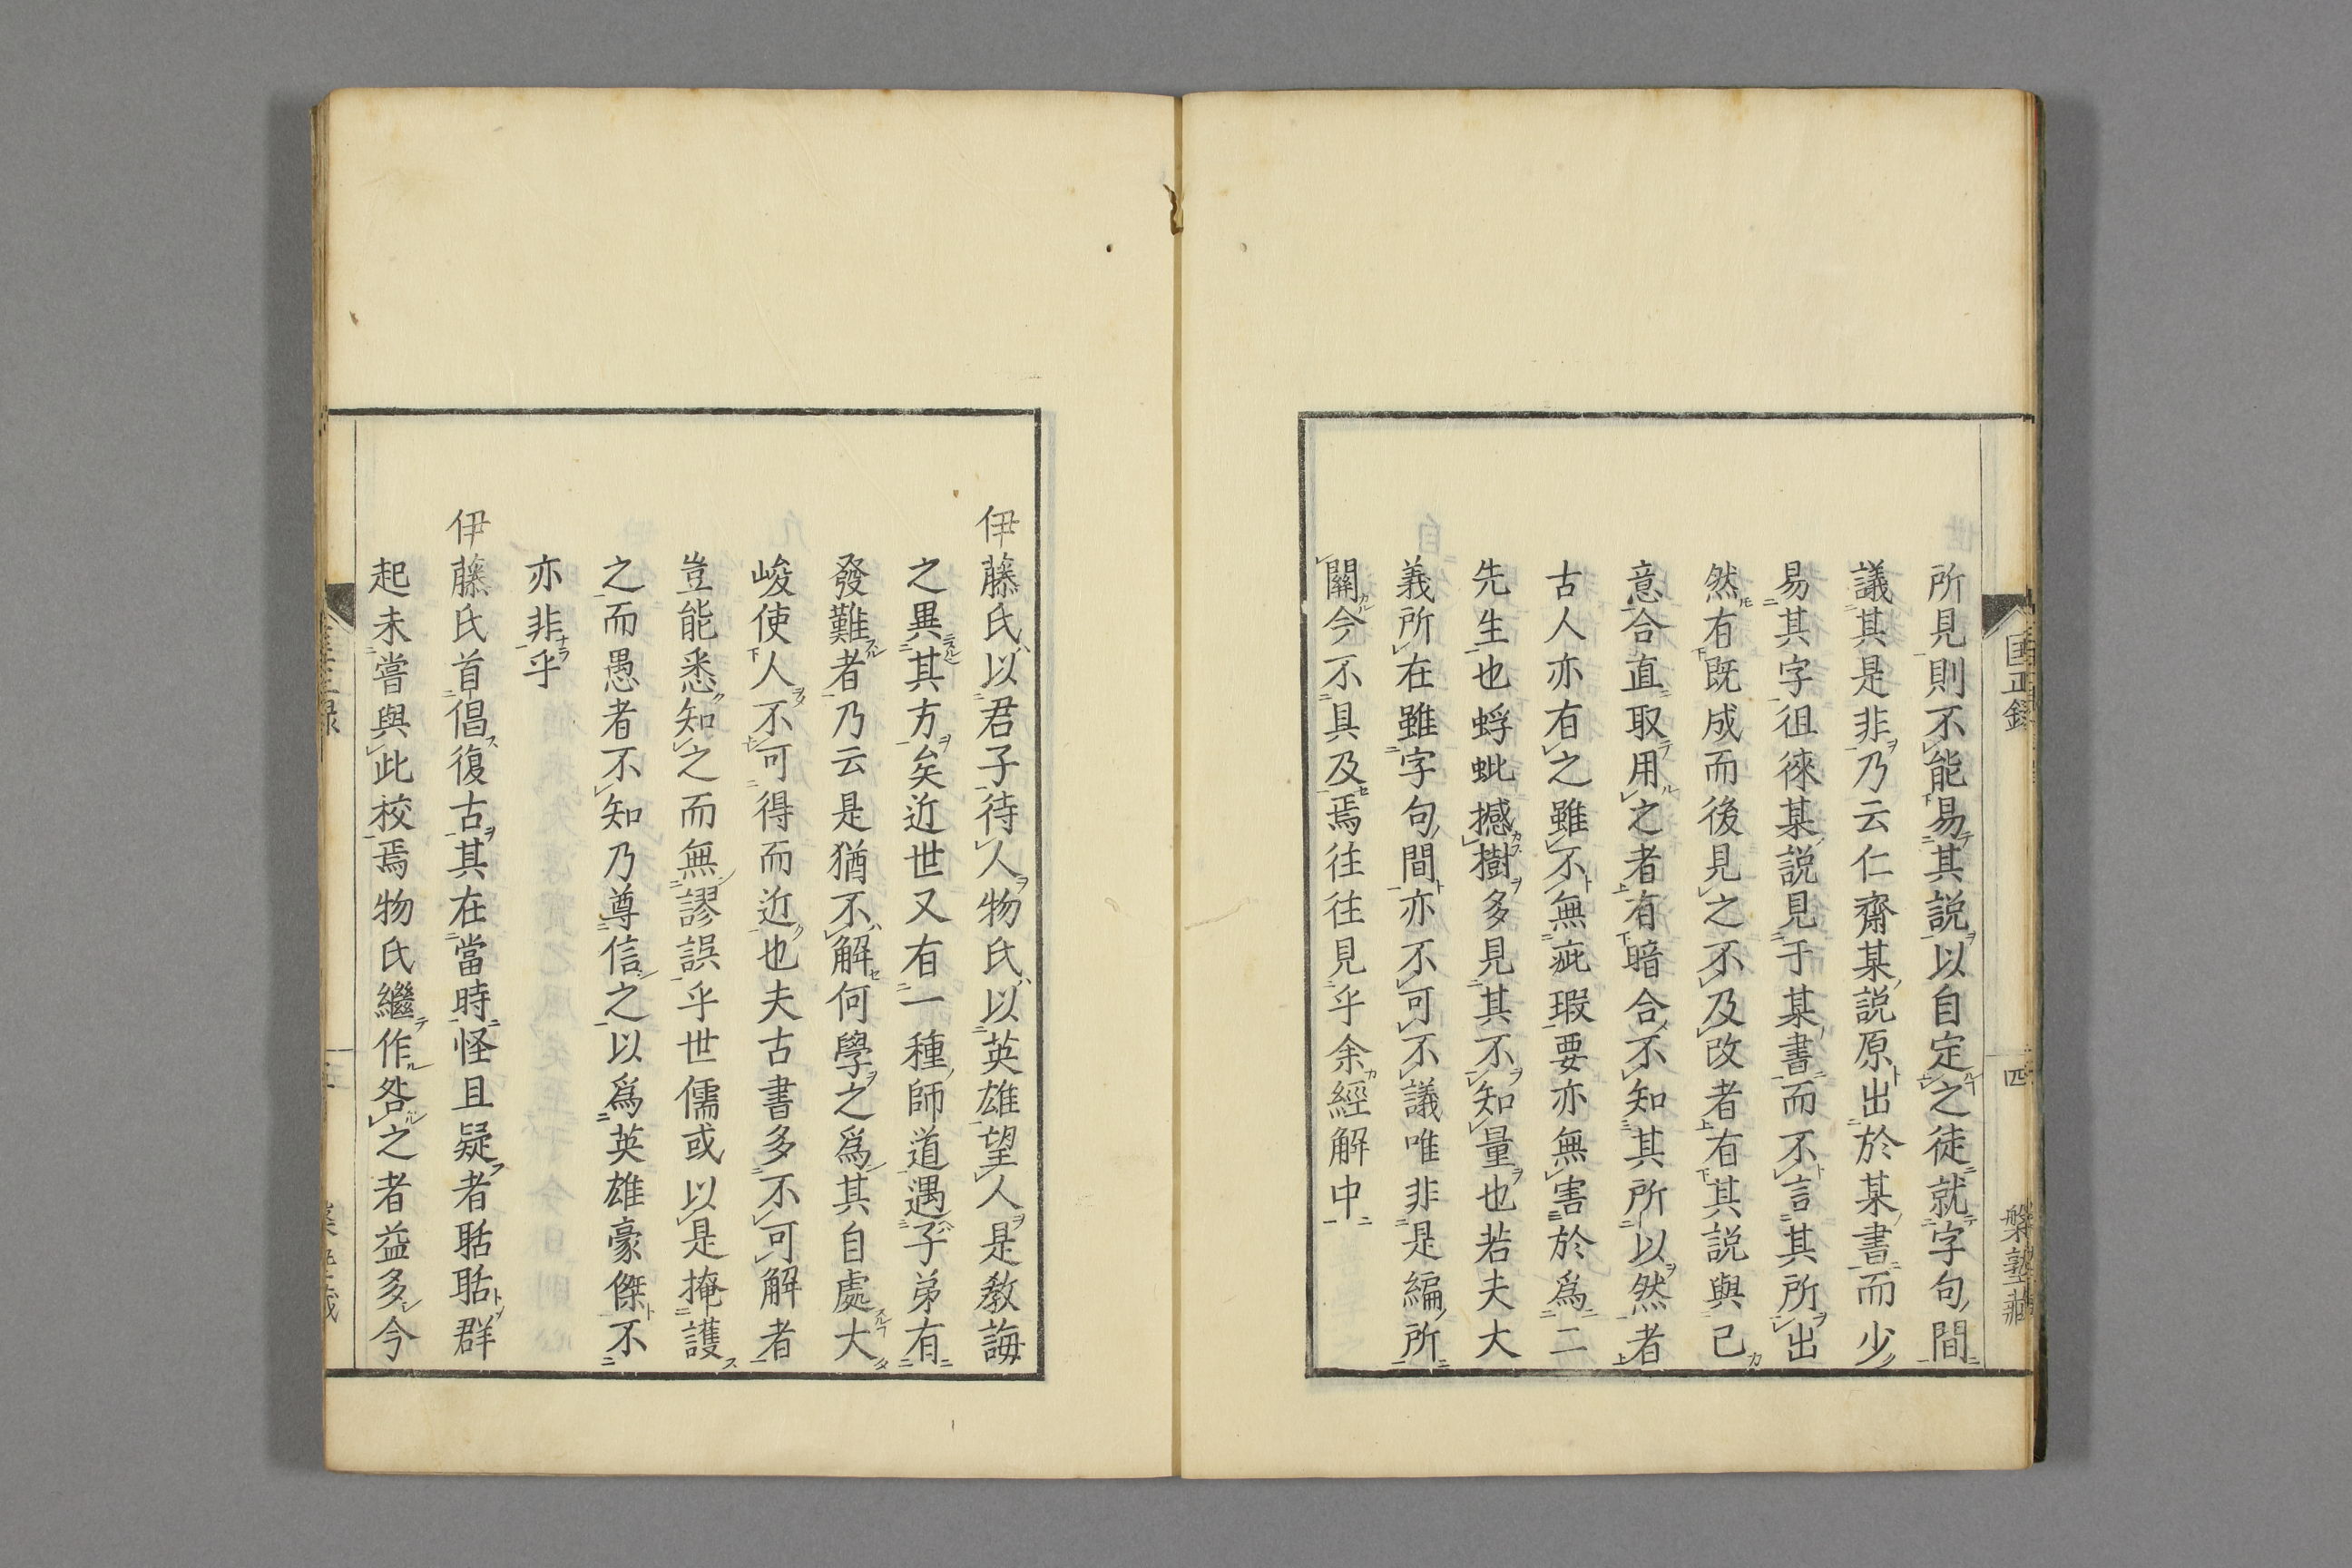 所見則不能易其説以自定之徒就字句間
議其是非乃云仁齋某説原出於某書而少
易其字徂徠某説見于某書而不言其所出
然有既成而後見之不及改者有其説與己
意合直取用之者有暗合不知其所以然者
古人亦有之雖不無疵瑕要亦無害於爲二
先生也蜉蚍撼樹多見其不知量也若夫大
義所在雖字句間亦不可不議唯非是編所
關今不具及焉往往見乎余經解中
匡正録
四
槃塾藏
伊藤氏以君子待人物氏以英雄望人是教誨
之異其方矣近世又有一種師道遇子弟有
發難者乃云是猶不解何學之爲其自處大
峻使人不可得而近也夫古書多不可解者
豈能悉知之而無謬誤乎世儒或以是掩護
之而愚者不知乃尊信之以爲英雄豪傑不
亦非乎
伊藤氏首倡復古其在當時怪且疑者聒聒群
起未嘗與此校焉物氏繼作咎之者益多今